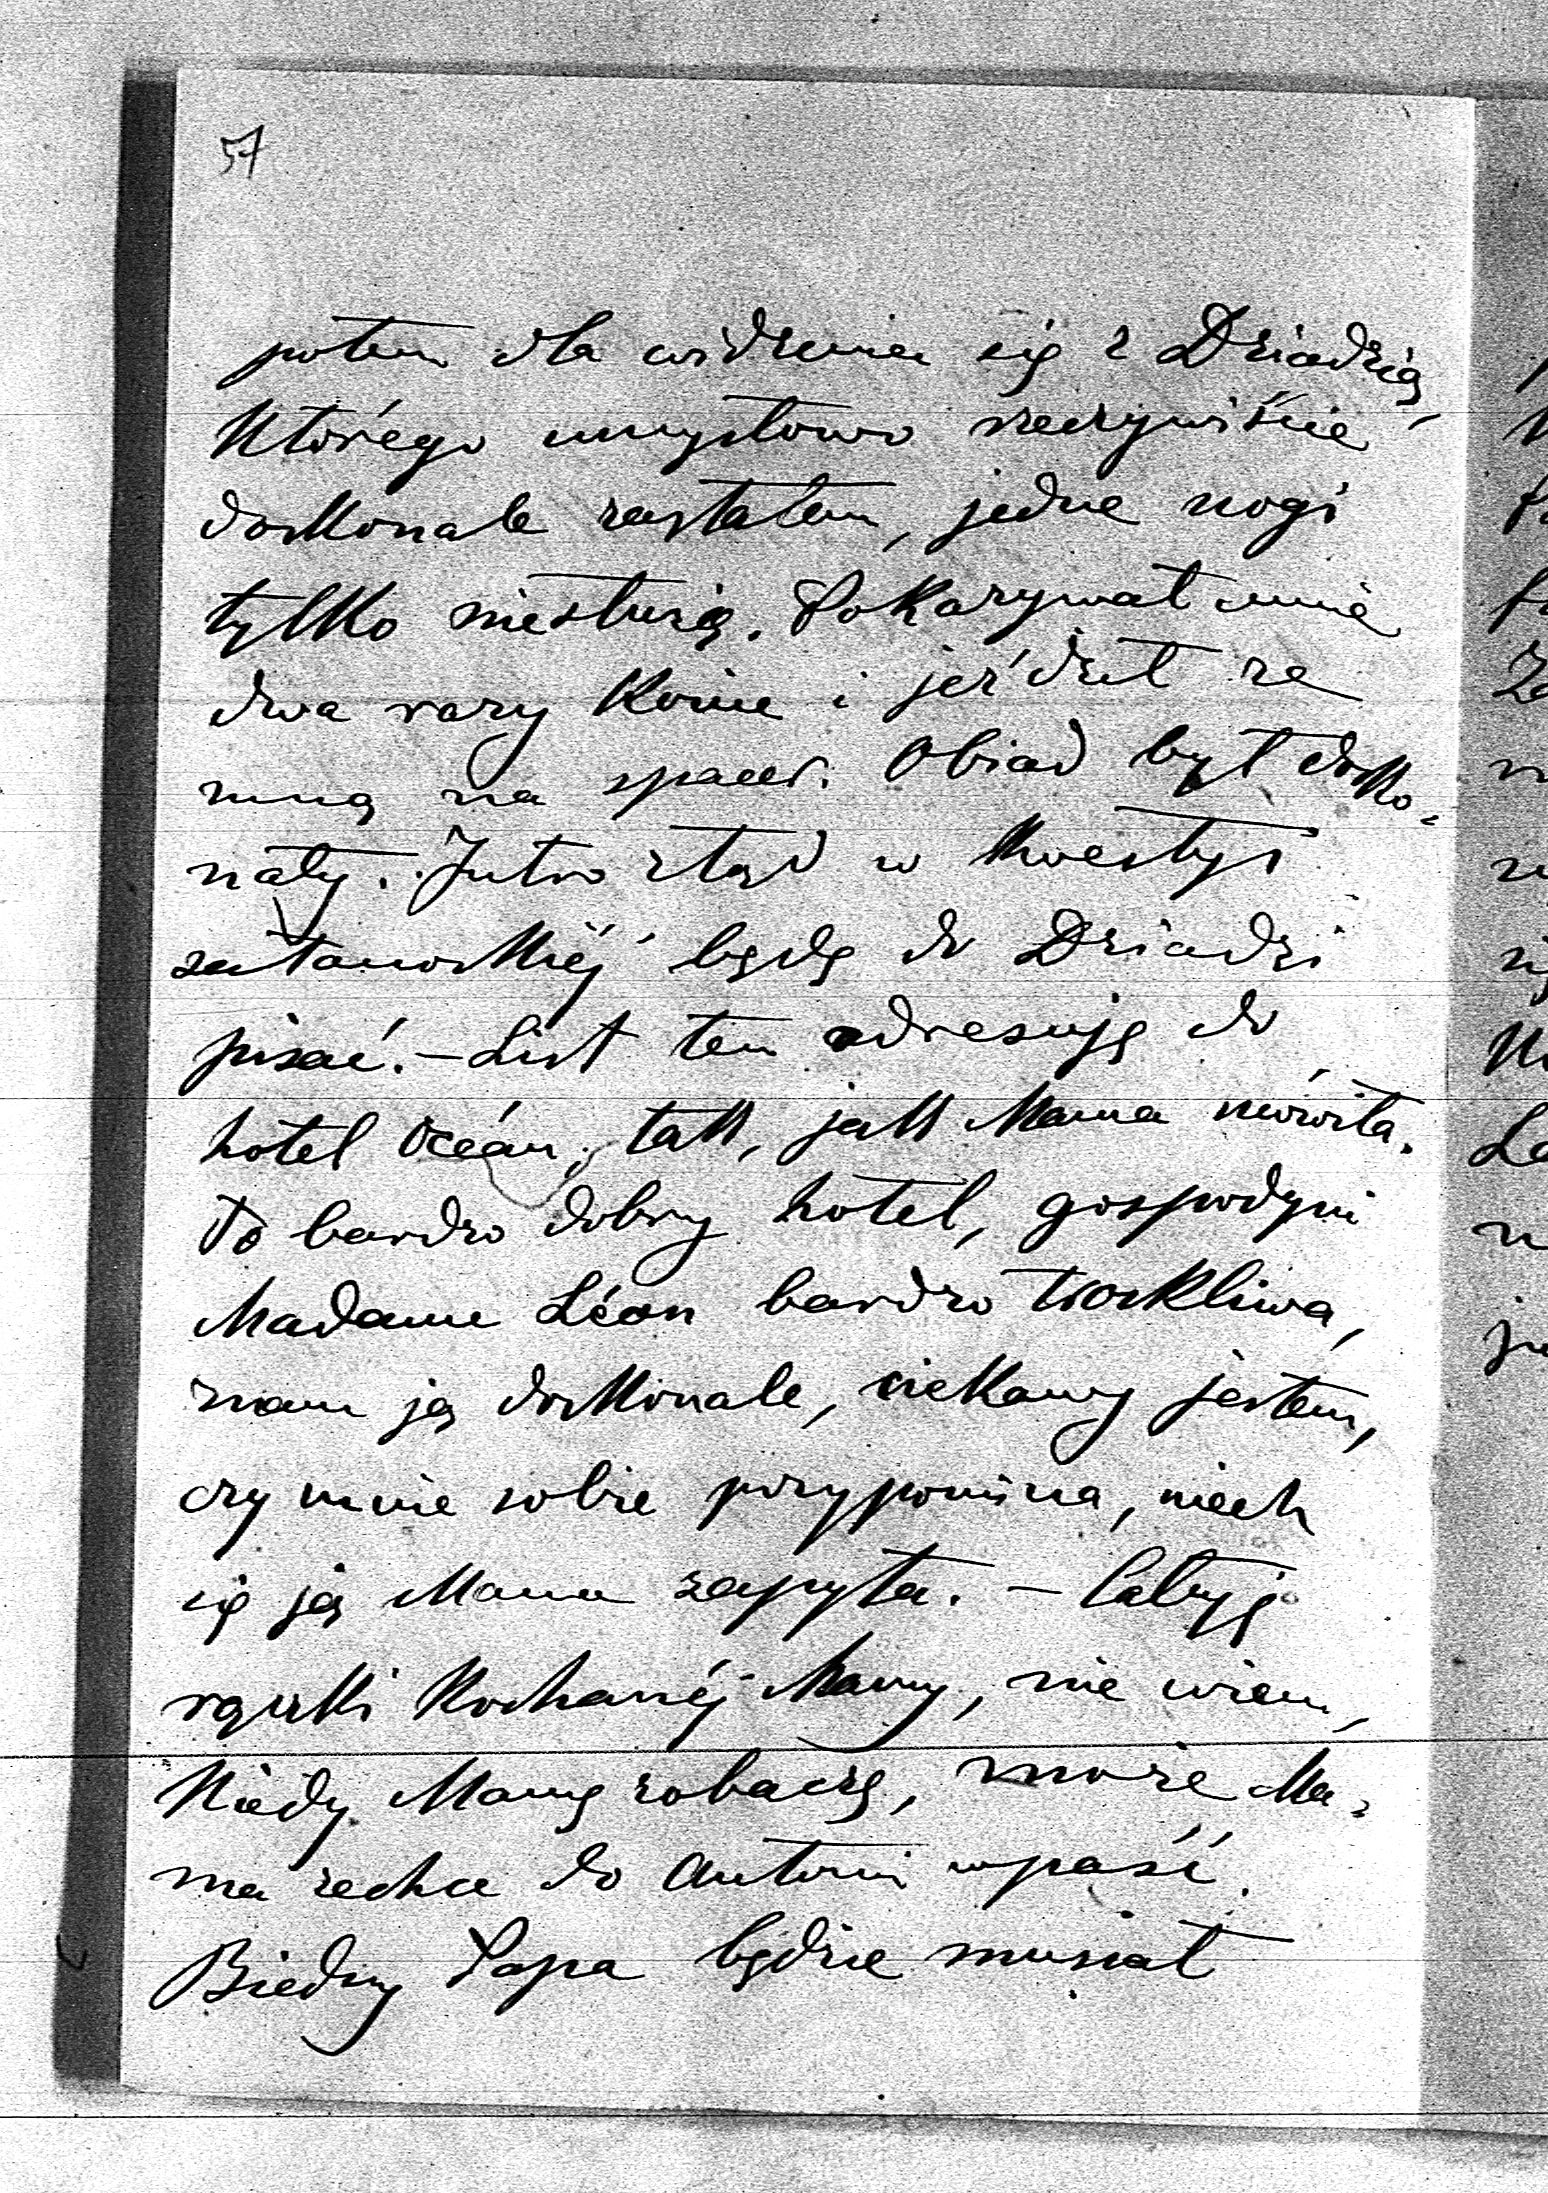 57
potem dla widzenia się z Dziadzią,
którego umysłowo rzeczywiście
doskonale zastałem, jedne nogi
tylko niesłużą. Pokazywał mnie
dwa razy konie i jeździł ze
mną na spacer. Obiad był dosko-
nały. Jutro ztąd w kwestyi
będę do Dziadzi
pisać. – List ten adresuję do
hotel Océan, tak, jak Mama mówiła.
To bardzo dobry hotel, gospodyni
Madame Léon bardzo troskliwa,
znam ją doskonale, ciekawy jestem,
czy mnie sobie przypomina, niech
się ją Mama zapyta. – Całuję
rączki kochanéj Mamy, nie wiem,
kiedy Mamę zobaczę, może Ma-
ma zechce do Antonin wpaść.
Biedny Papa będzie musiał